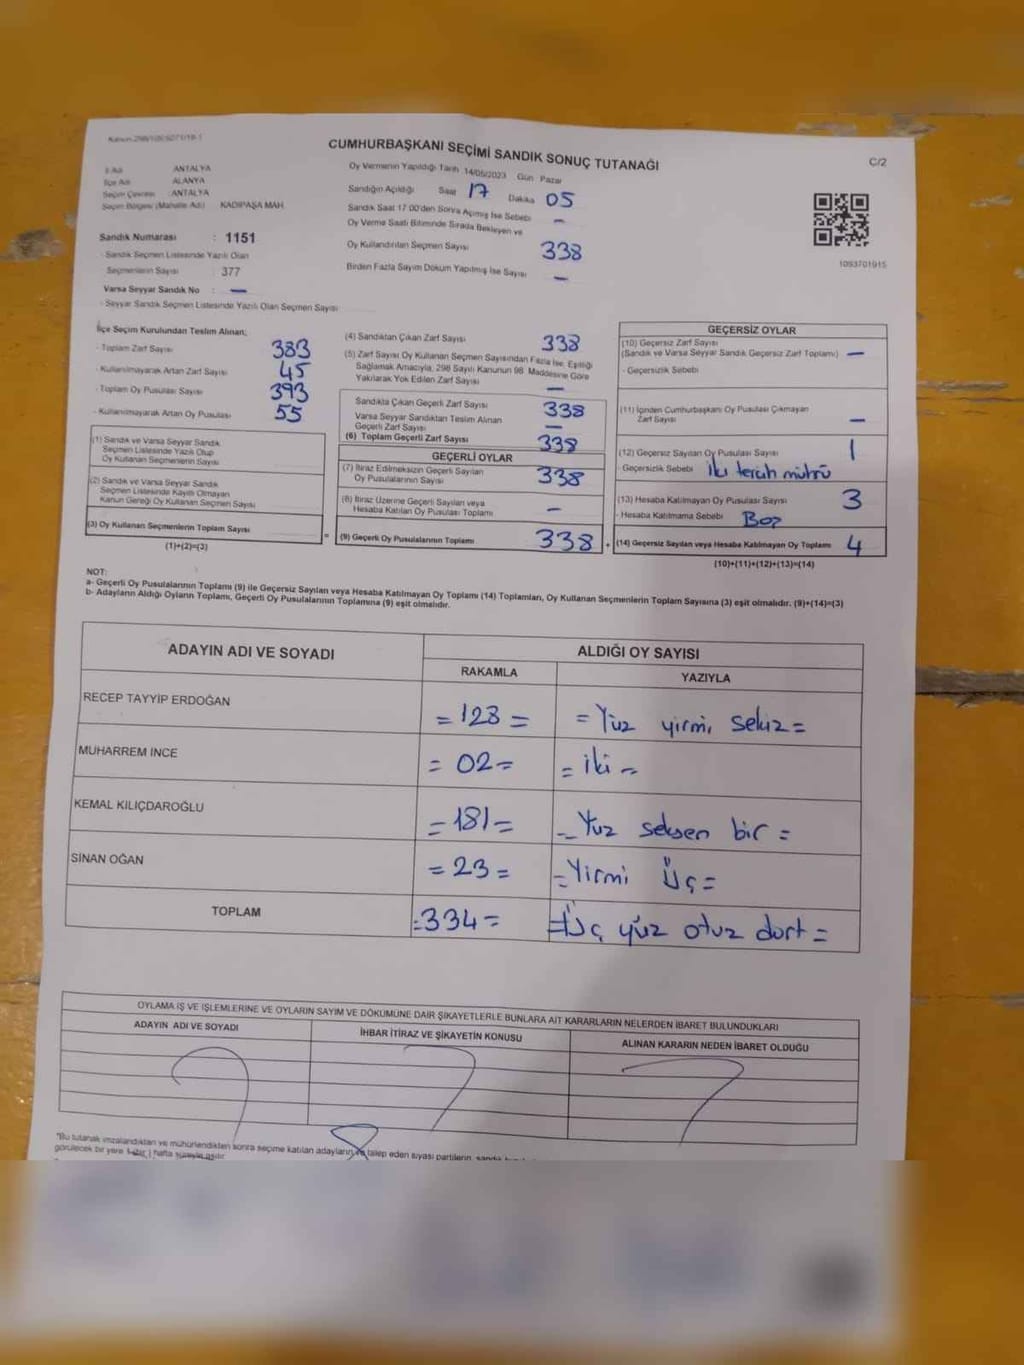 CUMHURBAŞKANI SEÇİMİ SANDIK SONUÇ TUTANAĞI
C/2
İl Adı ANTALYA
İlçe Adı ALANYA
Seçim Çevresi ANTALYA
Seçim Bölgesi (Mahalle Adı) KADIPAŞA MAH.
Sandık Numarası : 1151
- Sandık Seçmen Listesinde Yazılı Olan
Seçmenlerin Sayısı : 377
Varsa Seyyar Sandık No : —
- Seyyar Sandık Seçmen Listesinde Yazılı Olan Seçmen Sayısı
Oy Vermenin Yapıldığı Tarih 14/05/2023 Gün Pazar
Sandığın Açıldığı Saat 17 Dakika 05
Sandık Saat 17:00'den Sonra Açılmış İse Sebebi —
Oy Verme Saati Bitiminde Sırada Bekleyen ve
Oy Kullandırılan Seçmen Sayısı 338
Birden Fazla Sayım Döküm Yapılmış İse Sayısı —
1093701915
İlçe Seçim Kurulundan Teslim Alınan;
- Toplam Zarf Sayısı 383
- Kullanılmayarak Artan Zarf Sayısı 45
- Toplam Oy Pusulası Sayısı 393
- Kullanılmayarak Artan Oy Pusulası 55
(1) Sandık ve Varsa Seyyar Sandık
Seçmen Listesinde Yazılı Olup
Oy Kullanan Seçmenlerin Sayısı
(2) Sandık ve Varsa Seyyar Sandık
Seçmen Listesinde Kayıtlı Olmayan
Kanun Gereği Oy Kullanan Seçmen Sayısı
(3) Oy Kullanan Seçmenlerin Toplam Sayısı
(1)+(2)=(3)
(4) Sandıktan Çıkan Zarf Sayısı 338
(5) Zarf Sayısı Oy Kullanan Seçmen Sayısından Fazla İse, Eşitliği
Sağlamak Amacıyla, 298 Sayılı Kanunun 98. Maddesine Göre
Yakılarak Yok Edilen Zarf Sayısı —
Sandıkta Çıkan Geçerli Zarf Sayısı 338
Varsa Seyyar Sandıktan Teslim Alınan
Geçerli Zarf Sayısı —
(6) Toplam Geçerli Zarf Sayısı 338
GEÇERLİ OYLAR
(7) İtiraz Edilmeksizin Geçerli Sayılan
Oy Pusulalarının Sayısı 338
(8) İtiraz Üzerine Geçerli Sayılan veya
Hesaba Katılan Oy Pusulası Toplamı —
= (9) Geçerli Oy Pusulalarının Toplamı 338
GEÇERSİZ OYLAR
(10) Geçersiz Zarf Sayısı
(Sandık ve Varsa Seyyar Sandık Geçersiz Zarf Toplamı) —
- Geçersizlik Sebebi
(11) İçinden Cumhurbaşkanı Oy Pusulası Çıkmayan
Zarf Sayısı —
(12) Geçersiz Sayılan Oy Pusulası Sayısı 1
- Geçersizlik Sebebi İki tercih mührü
(13) Hesaba Katılmayan Oy Pusulası Sayısı 3
- Hesaba Katılmama Sebebi Boş
+ (14) Geçersiz Sayılan veya Hesaba Katılmayan Oy Toplamı 4
(10)+(11)+(12)+(13)=(14)
NOT:
a- Geçerli Oy Pusulalarının Toplamı (9) ile Geçersiz Sayılan veya Hesaba Katılmayan Oy Toplamı (14) Toplamları, Oy Kullanan Seçmenlerin Toplam Sayısına (3) eşit olmalıdır. (9)+(14)=(3)
b- Adayların Aldığı Oyların Toplamı, Geçerli Oy Pusulalarının Toplamına (9) eşit olmalıdır.
ADAYIN ADI VE SOYADI ALDIĞI OY SAYISI
RAKAMLA YAZIYLA
RECEP TAYYİP ERDOĞAN = 128 = = Yüz yirmi sekiz =
MUHARREM İNCE = 02 = = İki =
KEMAL KILIÇDAROĞLU = 181 = = Yüz seksen bir =
SİNAN OĞAN = 23 = = Yirmi Üç =
TOPLAM = 334 = = Üç yüz otuz dört =
OYLAMA İŞ VE İŞLEMLERİNE VE OYLARIN SAYIM VE DÖKÜMÜNE DAİR ŞİKAYETLERLE BUNLARA AİT KARARLARIN NELERDEN İBARET BULUNDUKLARI
ADAYIN ADI VE SOYADI İHBAR İTİRAZ VE ŞİKAYETİN KONUSU ALINAN KARARIN NEDEN İBARET OLDUĞU
*Bu tutanak imzalandıktan ve mühürlendikten sonra seçime katılan adayların ve talep eden siyasi partilerin, sandık
görülecek bir yere 1 (bir) hafta süreyle asılır.